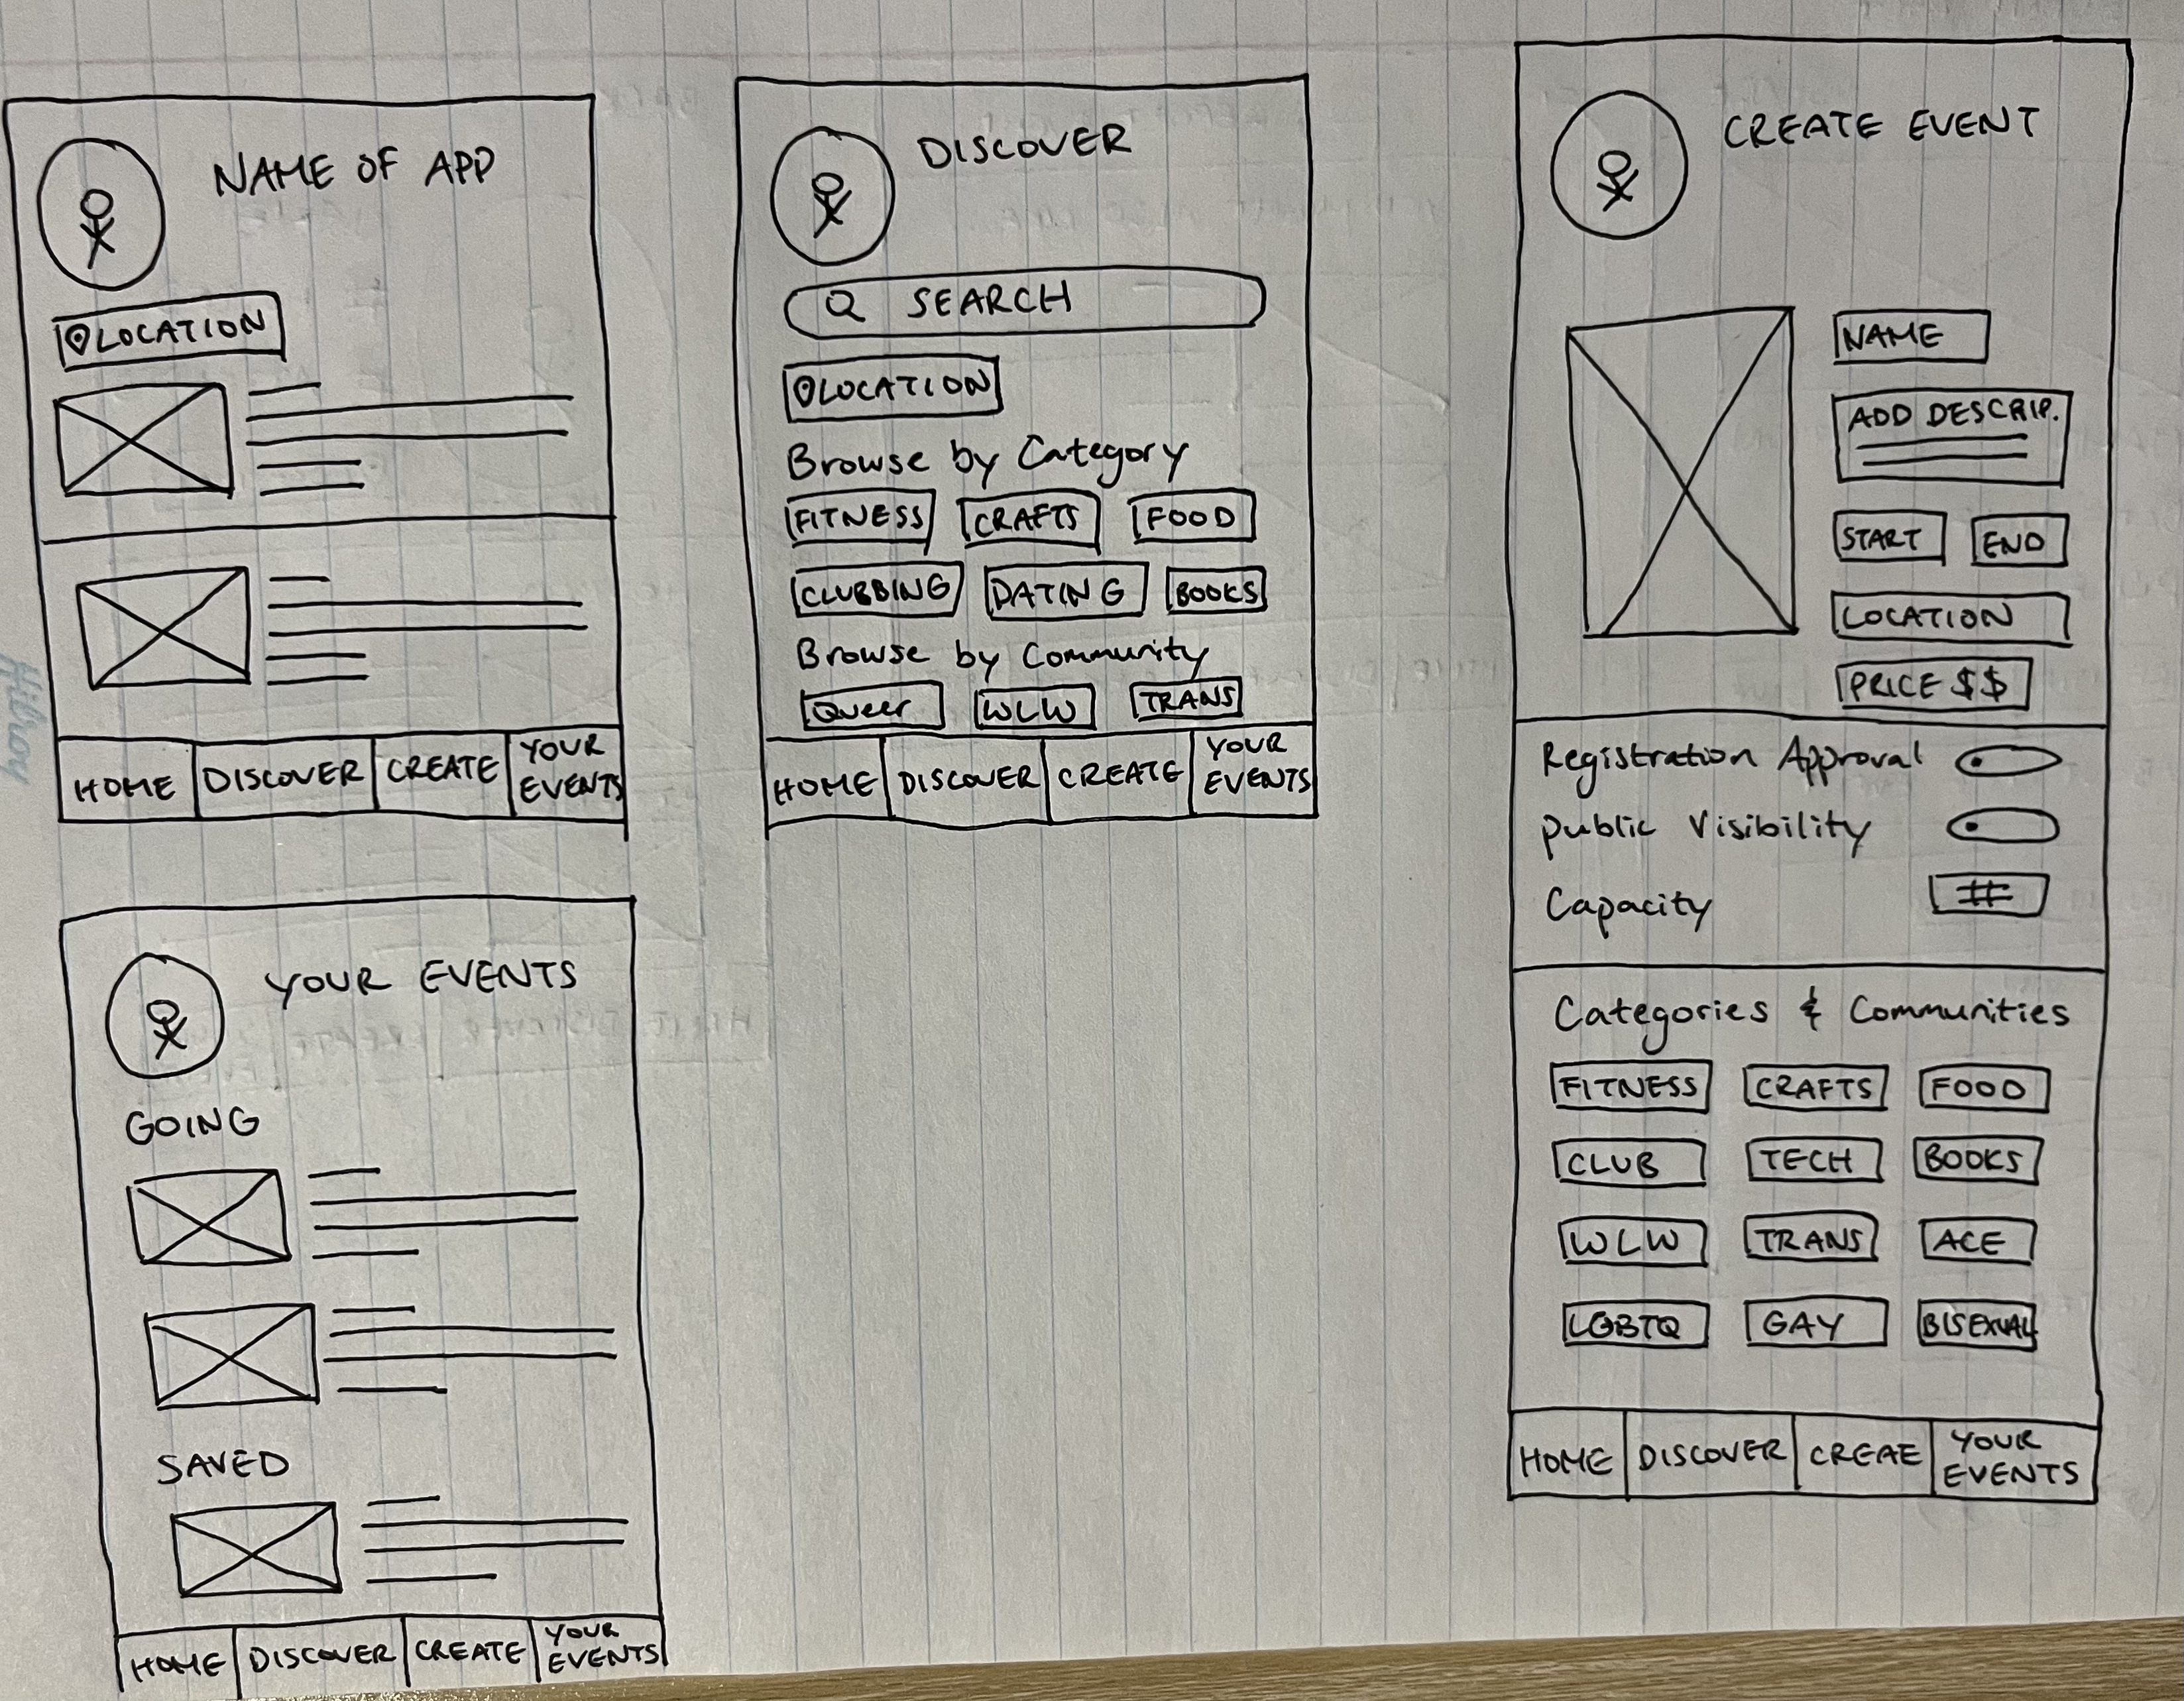 NAME OF APP
LOCATION
HOME DISCOVER CREATE YOUR EVENTS
DISCOVER
SEARCH
LOCATION
Browse by Category
FITNESS CRAFTS FOOD
CLUBBING DATING BOOKS
Browse by Community
Queer WLW TRANS
HOME DISCOVER CREATE YOUR EVENTS
CREATE EVENT
NAME
ADD DESCRIP.
START END
LOCATION
PRICE $$
Registration Approval
Public Visibility
Capacity #
Categories & Communities
FITNESS CRAFTS FOOD
CLUB TECH BOOKS
WLW TRANS ACE
LGBTQ GAY BISEXUAL
HOME DISCOVER CREAE YOUR EVENTS
YOUR EVENTS
GOING
SAVED
HOME DISCOVER CREATE YOUR EVENTS